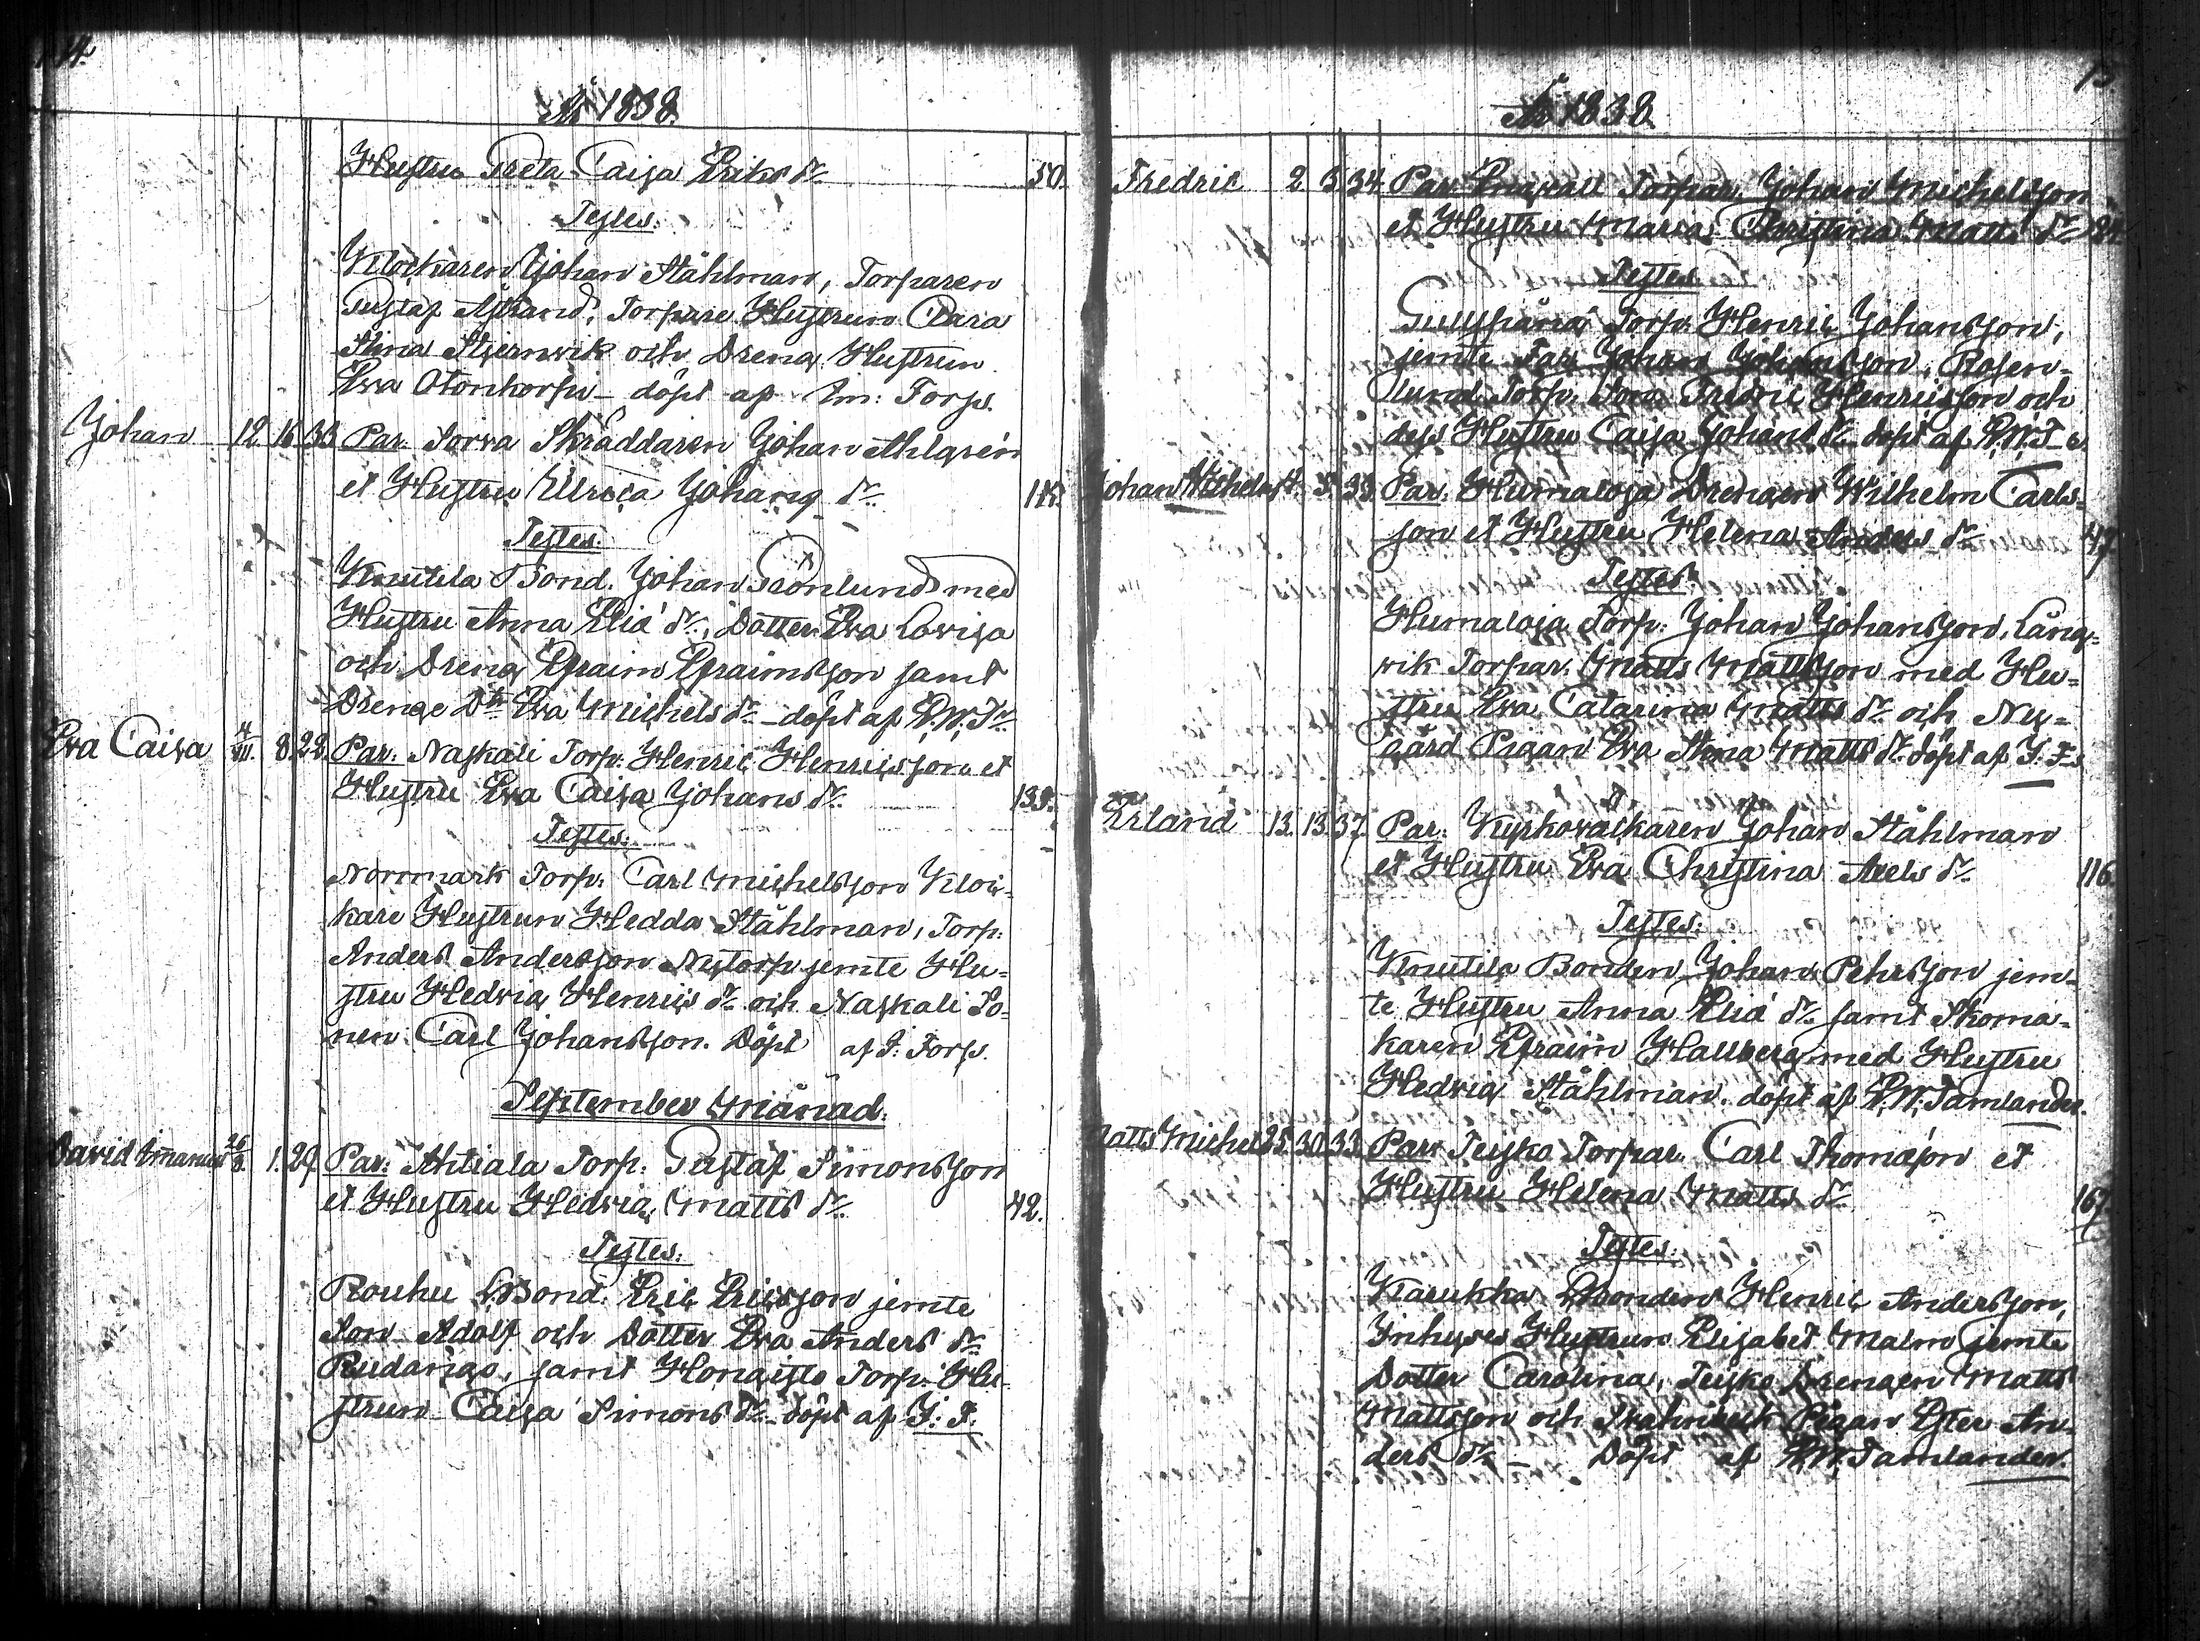 År 1838.
Hustru Greta Caisa Eriks dr. 50.
Testes:
Klockaren Johan Ståhlman, Torparen
Gustaf Åstrand, Torpare Hustrun Clara
Stina Stjernvik och Dreng Hustrun
Eva Otonkorpi - döpt af Im: Torp.
Johan 12 16 33 Par: Sorva Skräddaren Johan Ahlgrén
et Hustru Ulrica Johans dr.
Testes:
Knutila Bond. Johan Grönlund med
Hustru Anna Eliæ dr., Dotter Eva Lovisa
och Dreng Efraim Efraimsson samt
Drenge Dtr Eva Michels dr. - döpt af P.W.Tr.
Eva Caisa 8. 22. Par: Naskali Torp: Henric Henricsson et
Hustru Eva Caisa Johans dr. 135.
Testes:
Norrmark Torp: Carl Michelsson Kloc-
kare Hustrun Hedda Ståhlman, Torp:
Anders Andersson Nytorp jemte Hu-
stru Hedvig Henrics dr. och Naskali So-
nen Carl Johansson. Döpt af I: Torp.
September Månad.
David Imanuel 26/8. 1. 29. Par: Ahtiala Torp: Gustaf Simonsson
et Hustru Hedvig Matts dr. 42.
Testes:
Rouhu Bond: Eric Ericsson jemte
Son Adolf och Dotter Eva Anders dr.
Rudanko, samt Hongisto Torp: Hu-
strun Caisa Simons dr. döpt af I: T.
15
År 1838.
Fredric 2 3 34. Par: Torpar. Johan Michelsson
et Hustru Maria Christina Matts dr.
Testes:
Torp: Henric Johansson,
jemte Johan Johansson, Rosen-
lund Torp. Son Fredric Henricsson och
dess Hustru Caisa Johans dr. döpt af P.W.T.
Johan Vilhelm 33 Par: Humaloja Drengen Wilhelm Carls-
son et Hustru Helena Anders dr. 47
Testes:
Humaloja Torp: Johan Johansson, Lång-
vik Torpar. Matts Mattsson med Hu-
stru Eva Catarina Matts dr. och Ny-
gård Pigan Eva Stina Matts dr. döpt af I: T.
Erland 13. 13. 37. Par: Kyrkovaktaren Johan Ståhlman
et Hustru Eva Christina Axels dr. 116
Testes:
Knutila Bonden Johan Pehrsson jem-
te Hustru Anna Eliæ dr. samt Skoma-
karen Efraim Hallberg med Hustru
Hedvig Ståhlman. döpt af P.W. Tamlander.
Matts Michel 25. 30. 33. Par: Teisko Torpar. Carl Thomason et
Hustru Helena Matts dr. 167
Testes:
Karukka Bonden Henric Andersson,
Inhyses Hustrun Elisabet Malm jemte
Dotter Carolina, Teisko Drengen Matts
Mattsson och Pigan Ester An-
ders dr. - Döpt af P.W. Tamlander.